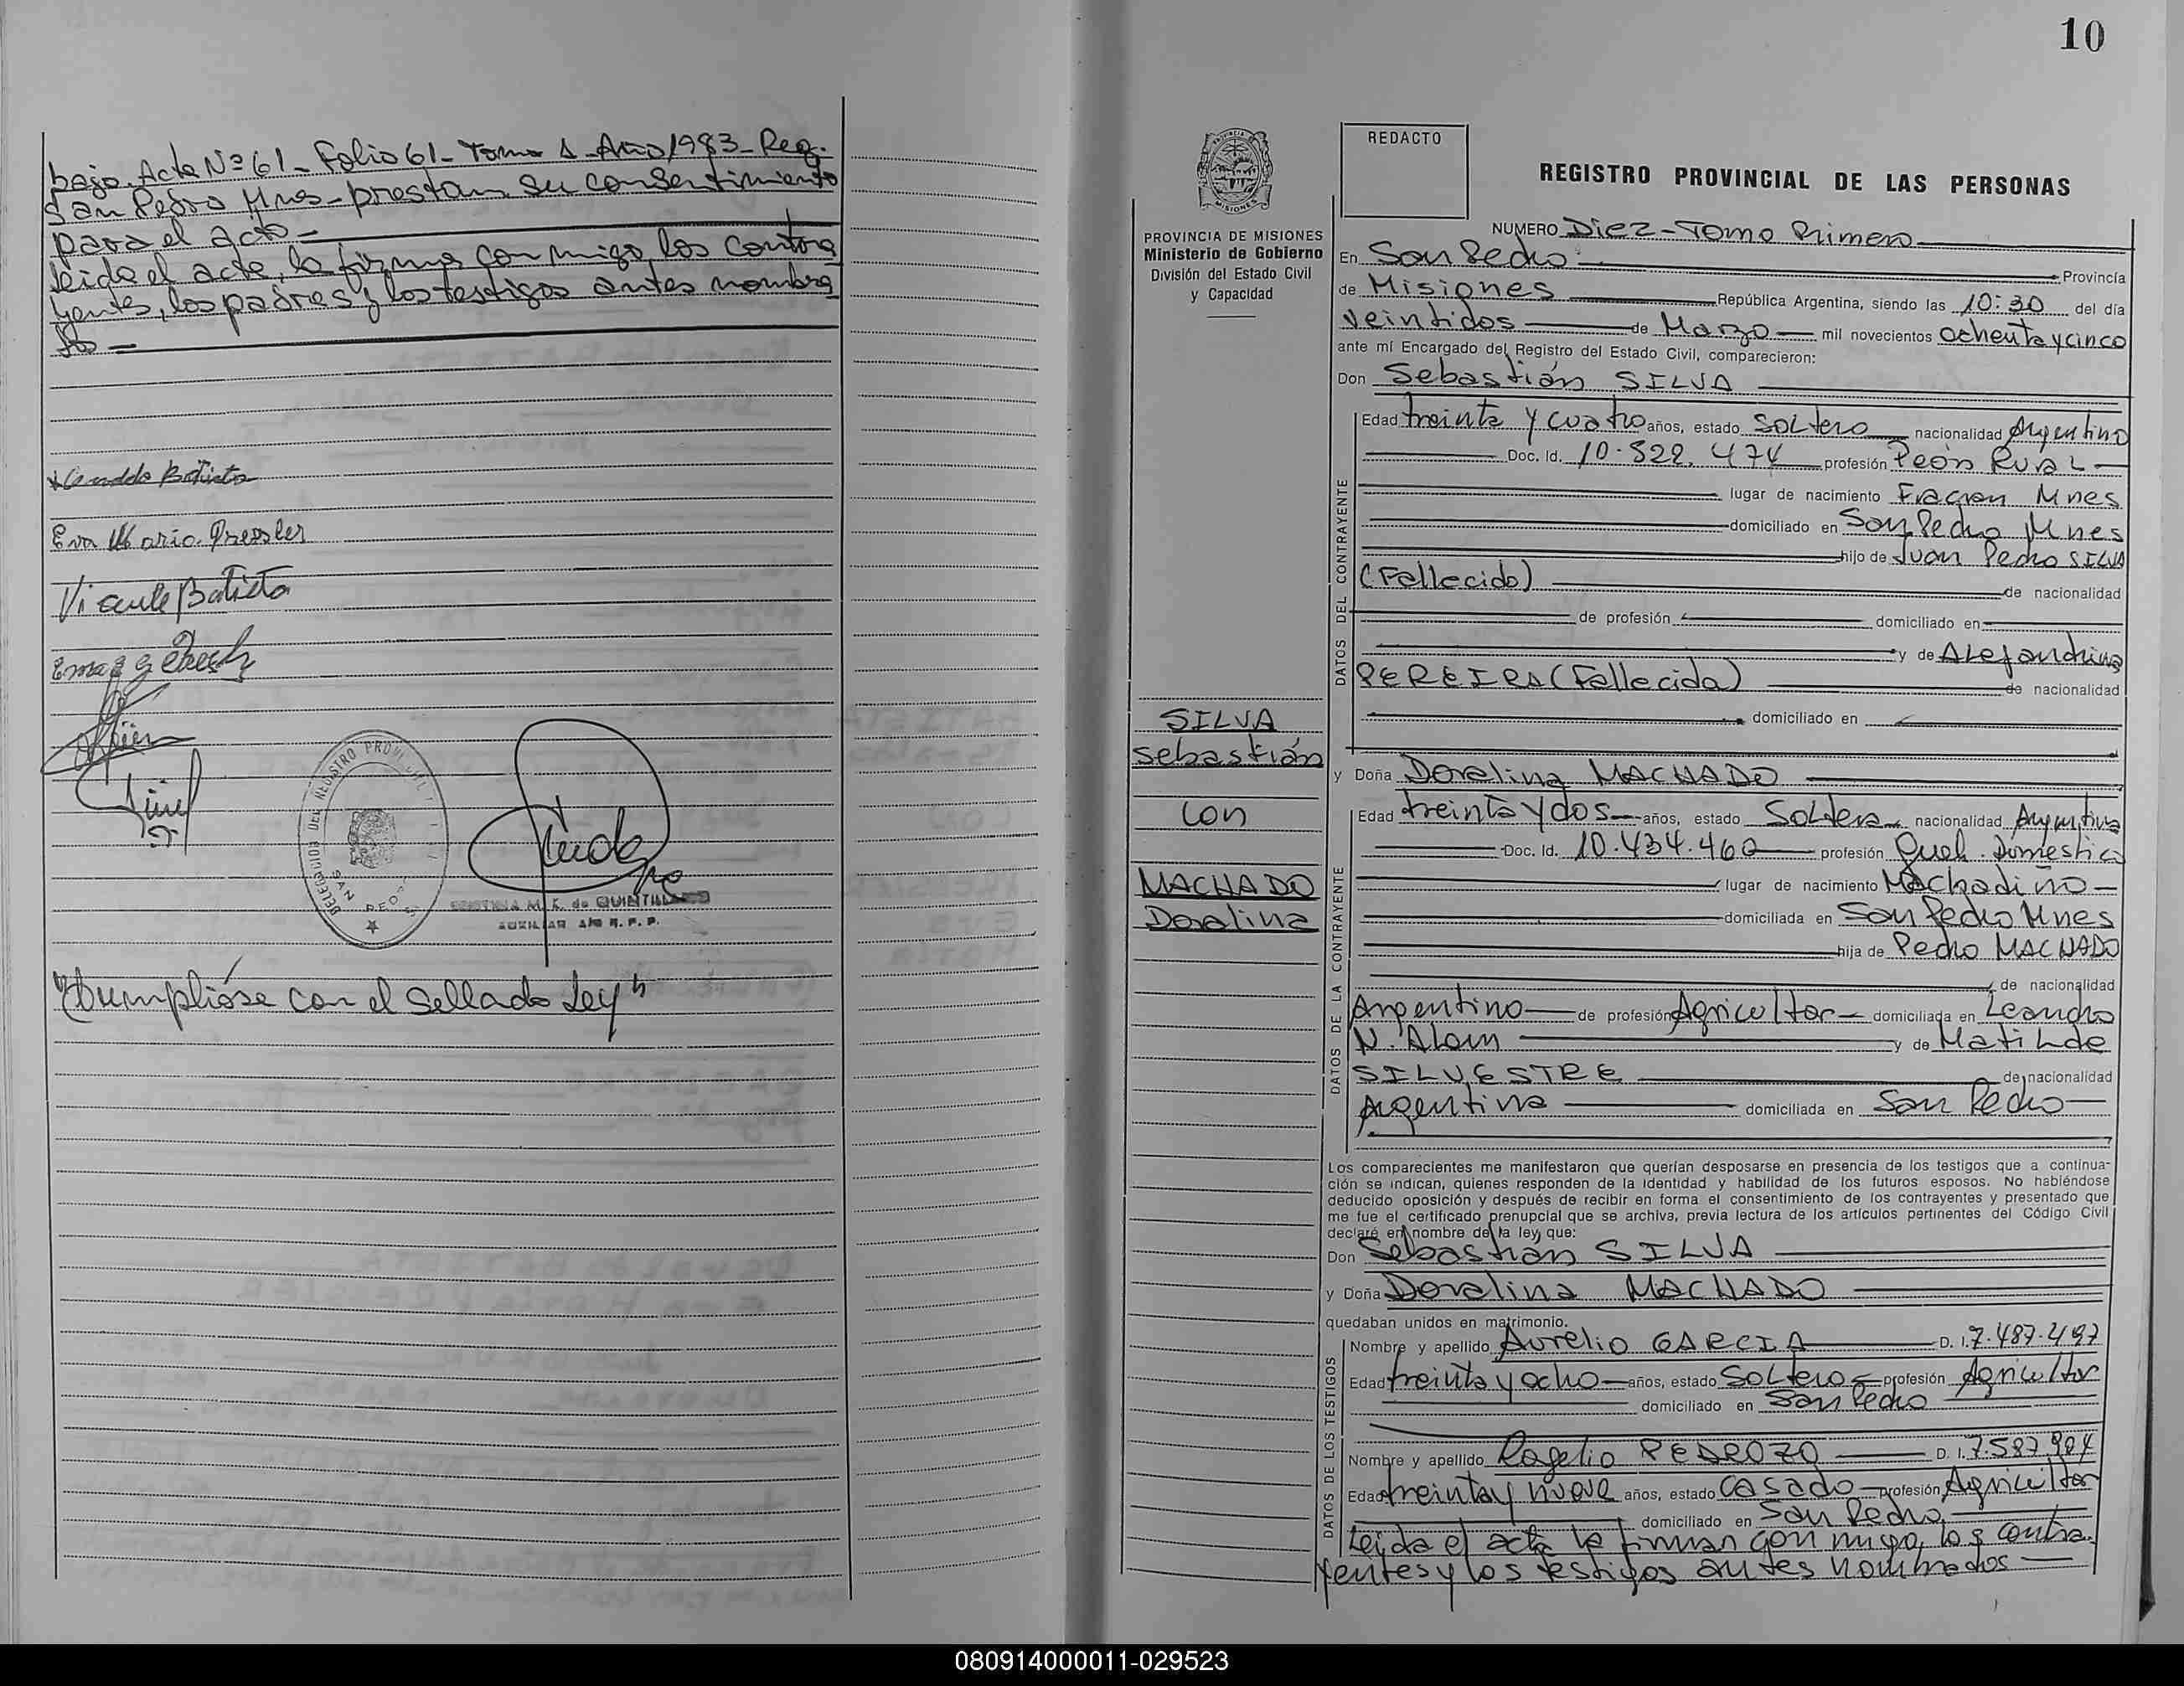 bajo. Acta Nº 61- Folio 61- Tomo 1- Año 1983- Reg.
San Pedro Mnes- prestan su consentimiento
para el acto-
leida el acta, la firman conmigo, los contra
yentes, los padres y los testigos antes nombra
do-
Batista
Eva Maria Pressler
Vicente Batista
DELEGACION DEL REGISTRO PROVINCIAL
SAN PEDRO
M. K. de QUINTILLA
AUXILIAR
R. P. P.
"Cumplióse con el sellado Ley"
10
PROVINCIA DE MISIONES
Ministerio de Gobierno
División del Estado Civil
y Capacidad
SILVA
Sebastián
con
MACHADO
Doralina
REDACTO
REGISTRO PROVINCIAL DE LAS PERSONAS
NUMERO Diez-Tomo Primero
En San Pedro Provincia
de Misiones República Argentina, siendo las 10:30 del día
Veintidos de Marzo mil novecientos ochenta y cinco
ante mí Encargado del Registro del Estado Civil, comparecieron:
Don Sebastián SILVA
DATOS DEL CONTRAYENTE
Edad treinta y cuatro años, estado Soltero nacionalidad Argentino
Doc. Id. 10.822.474 profesión Peón Rural
lugar de nacimiento Fracran Mnes
domiciliado en San Pedro Mnes
hijo de Juan Pedro SILVA
(Fallecido) de nacionalidad
de profesión domiciliado en
y de Alejandrina
PEREIRA (Fallecida) de nacionalidad
domiciliado en
y Doña Doralina MACHADO
DATOS DE LA CONTRAYENTE
Edad treinta y dos años, estado Soltera nacionalidad Argentina
Doc. Id. 10.434.460 profesión Queh. Domestica
lugar de nacimiento Machadiño
domiciliada en San Pedro Mnes
hija de Pedro MACHADO
de nacionalidad
Argentino de profesión Agricultor domiciliada en Leandro
N. Alem y de Matilde
SILVESTRE de nacionalidad
Argentina domiciliada en San Pedro
Los comparecientes me manifestaron que querían desposarse en presencia de los testigos que a continua-
ción se indican, quienes responden de la identidad y habilidad de los futuros esposos. No habiéndose
deducido oposición y después de recibir en forma el consentimiento de los contrayentes y presentado que
me fue el certificado prenupcial que se archiva, previa lectura de los artículos pertinentes del Código Civil
declaré en nombre de la ley que:
Don Sebastián SILVA
y Doña Doralina MACHADO
quedaban unidos en matrimonio.
DATOS DE LOS TESTIGOS
Nombre y apellido Aurelio GARCIA D. I. 7.487.497
Edad treinta y ocho años, estado Soltero profesión Agricultor
domiciliado en San Pedro
Nombre y apellido Rogelio PEDROZO D. I. 7.587.984
Edad treinta y nueve años, estado Casado profesión Agricultor
domiciliado en San Pedro
Leida el acta la firman conmigo, los contra
yentes y los testigos antes nombrados
080914000011-029523